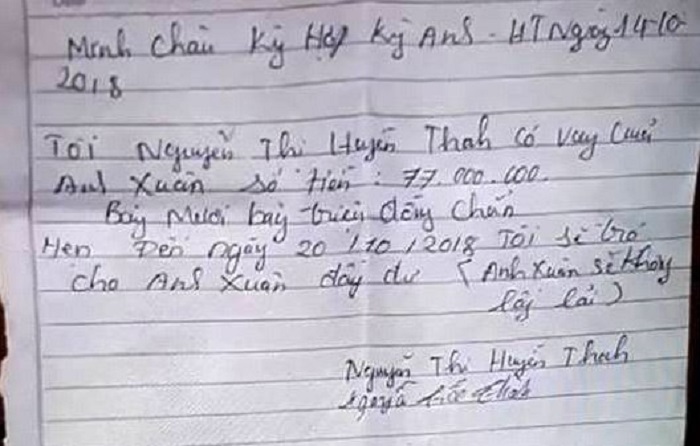 Minh Châu Kỳ Hợp Kỳ Anh - HT Ngày 14-10
2018
Tôi Nguyễn Thị Huyền Thanh có vay của
Anh Xuân số tiền : 77.000.000.
Bảy Mươi bảy triệu đồng chẵn
Hẹn Đến ngày 20 / 10 / 2018 Tôi sẽ trả
cho Anh Xuân đầy đủ ( Anh Xuân sẽ không
lấy lãi )
Nguyễn Thị Huyền Thanh